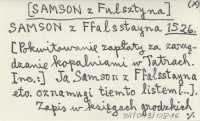 (x)
[SAMSON z Fulsztyna]
SAMSON z Ffalsstayna 1526.
[Pokwitowanie zapłaty za zarzą-
dzanie kopalniami w Tatrach.
Inc.:] Ja Samson z Ffalsstayna
eto. oznamugi tiemto listem [...].
Zapis w księgach grodzkich
%.